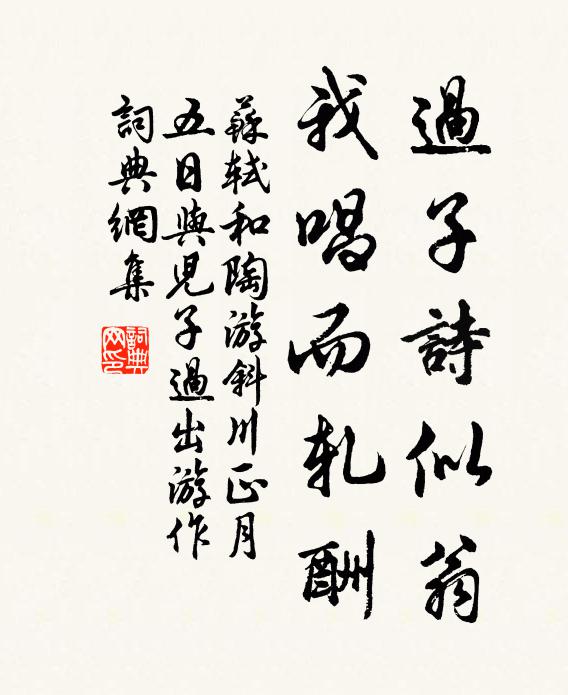 過子詩似翁
我唱而軋酬
蘇軾和陶游斜川正月
五日與兒子過出游作
詞典網集
詞典网印